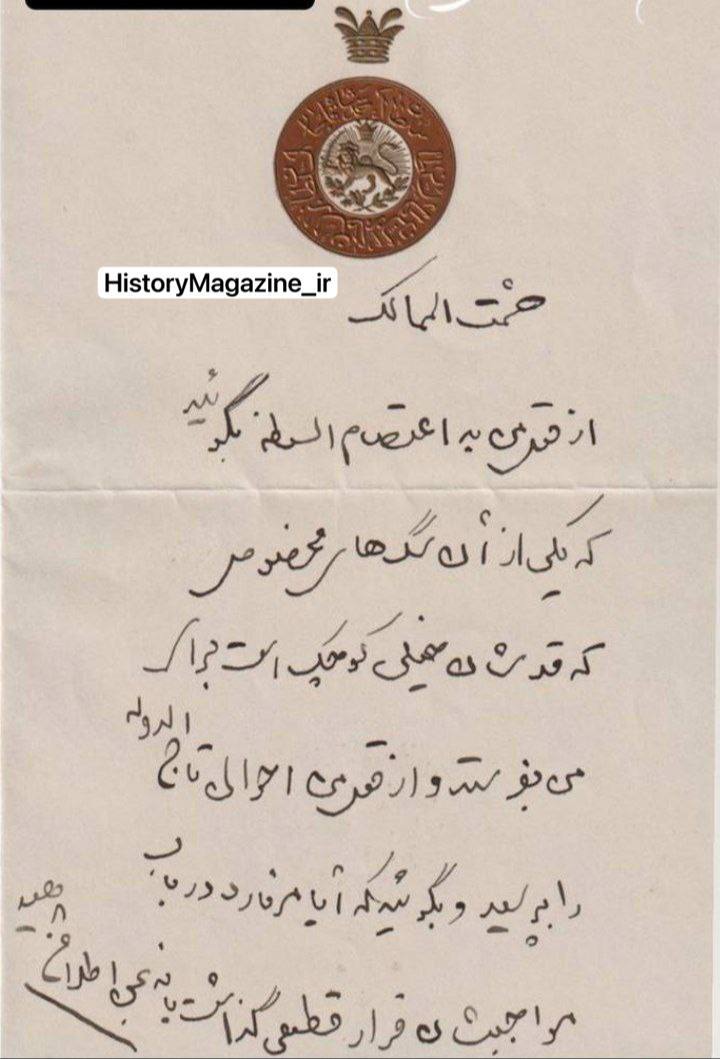 HistoryMagazine_ir
حشمت الممالک
از قول من به اعتصام السلطنه بگوئید
که یکی از آن سگ های مخصوص
که قدشان خیلی کوچک است برای
من بفرستد و از قول من احوال تاج الدوله
را بپرسید و بگوئید که آیا مرفارد در باب
مواجبشان قرار قطعی گذاشت یا نه بمن اطلاع دهید